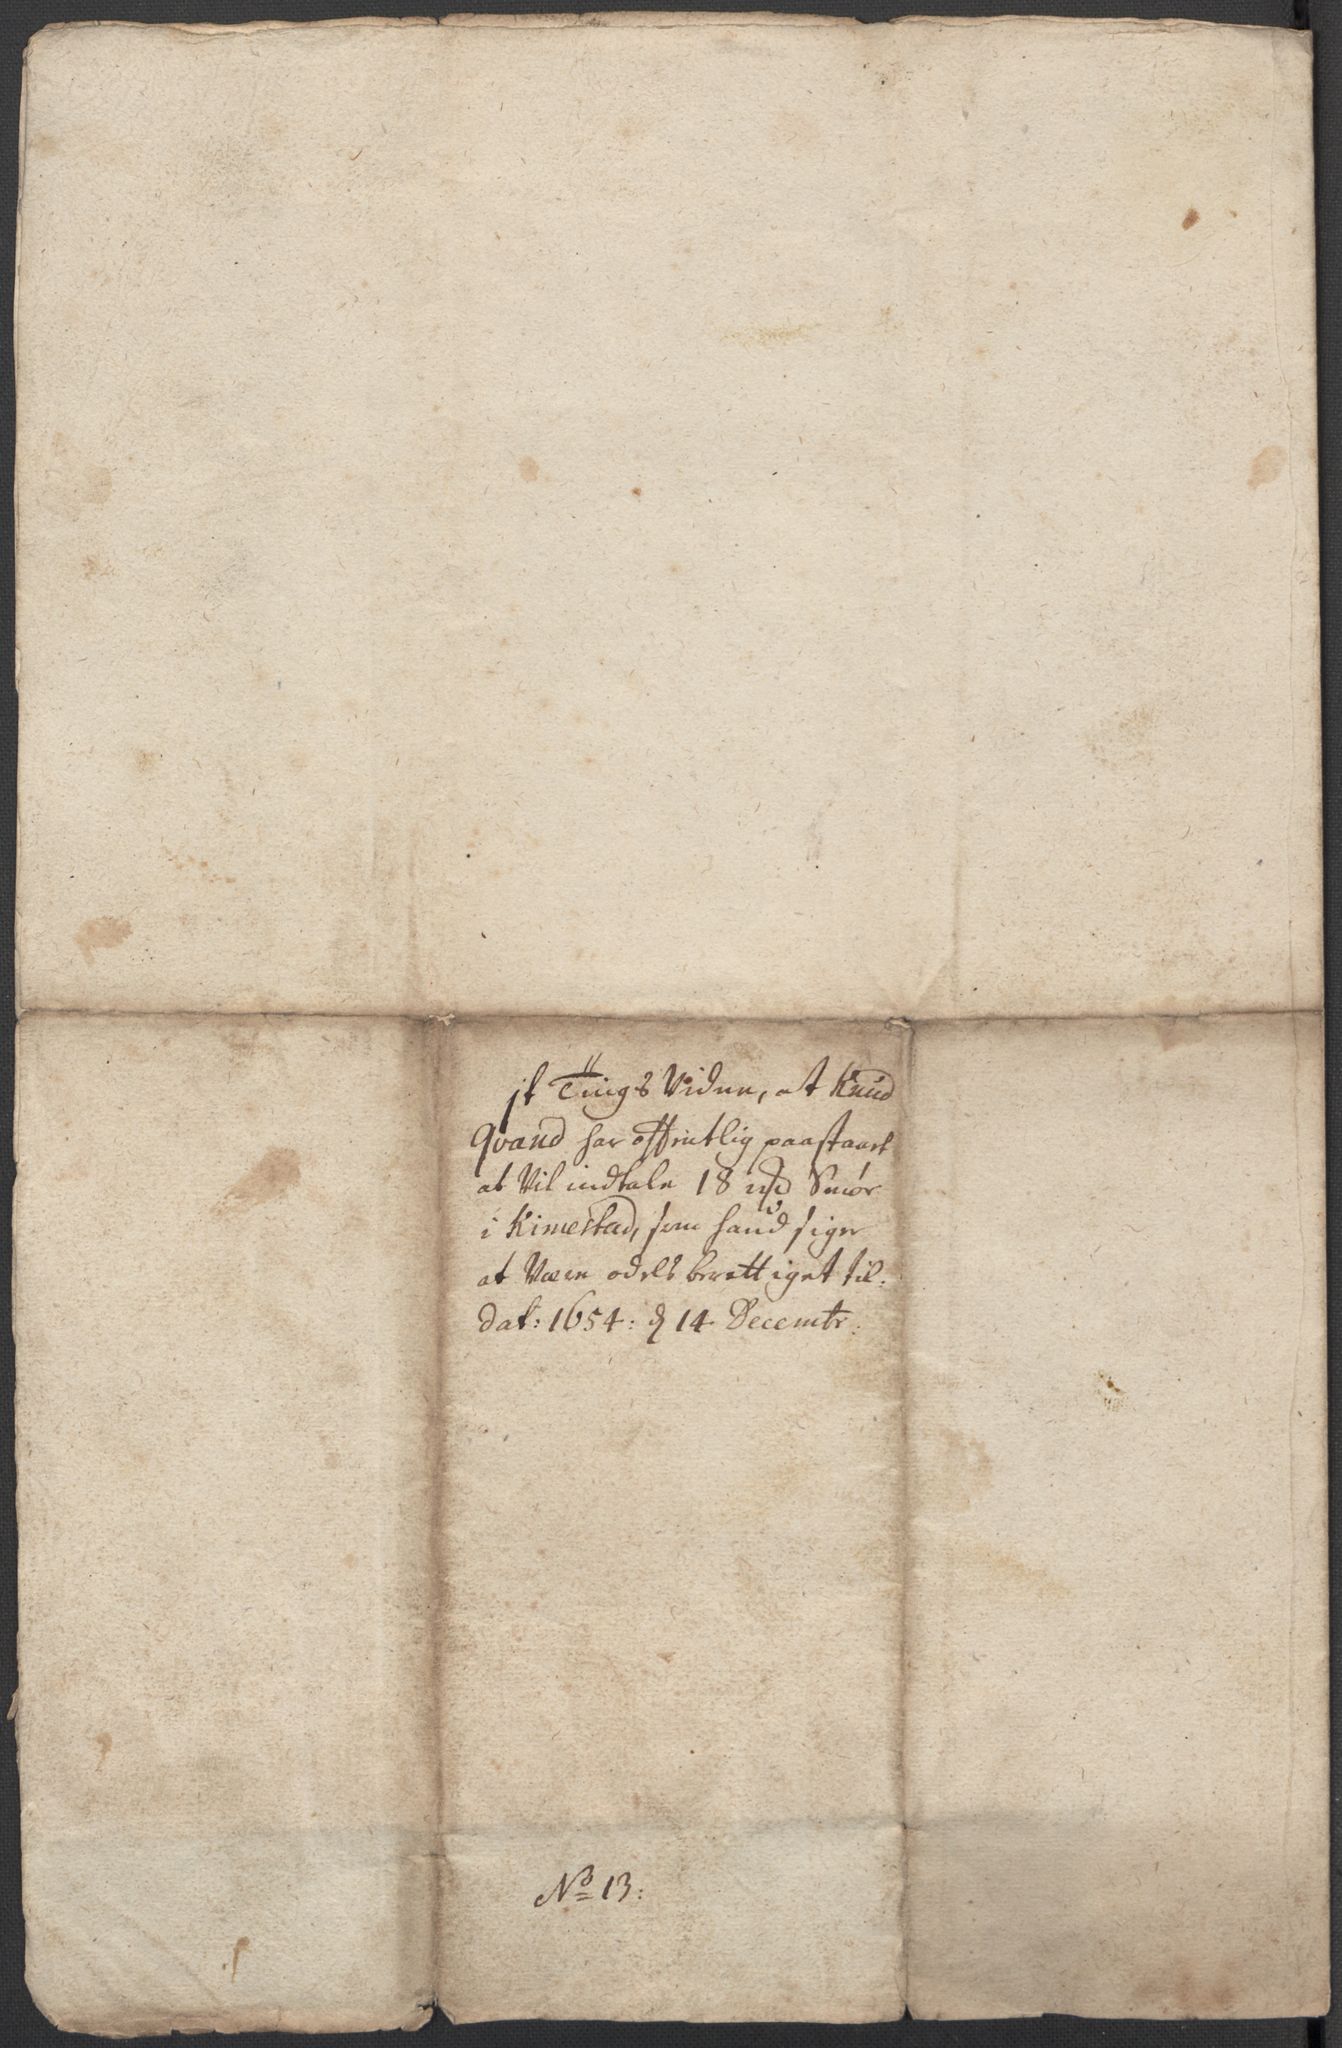 it Tings Vidne, at Knud
Qvand har offentlig paastaaet
at Vil indtale 18 mkr Smør
i Kimestad, som hand siger
at Være odels berettiget til.
Dat: 1654: d 14 Decembr.
No 13: